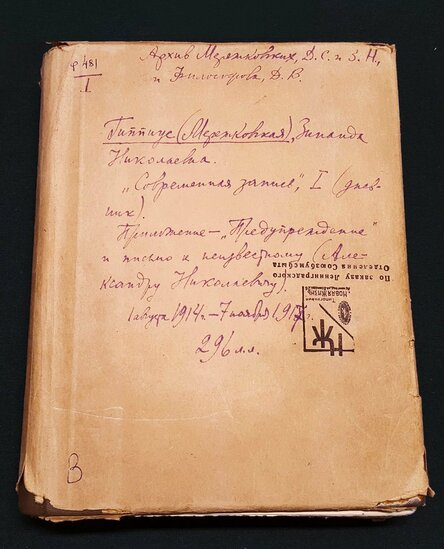 ф 481
I
Архив Мережковских, Д.С. и З.Н.,
и Философова, Д.В.
Гиппиус (Мережковская), Зинаида
Николаевна.
„Современная запись", I (днев-
ник).
Приложение – „Предупреждение"
и письмо к неизвестному (Але-
ксандру Николаевичу).
1 августа 1914 г. – 7 ноября 1917 г.
296 л.л.
По заказу Ленинградского
Отделения Союзбумсбыта
Типография
НОВАЯ ЖИЗНЬ
НЖ
В